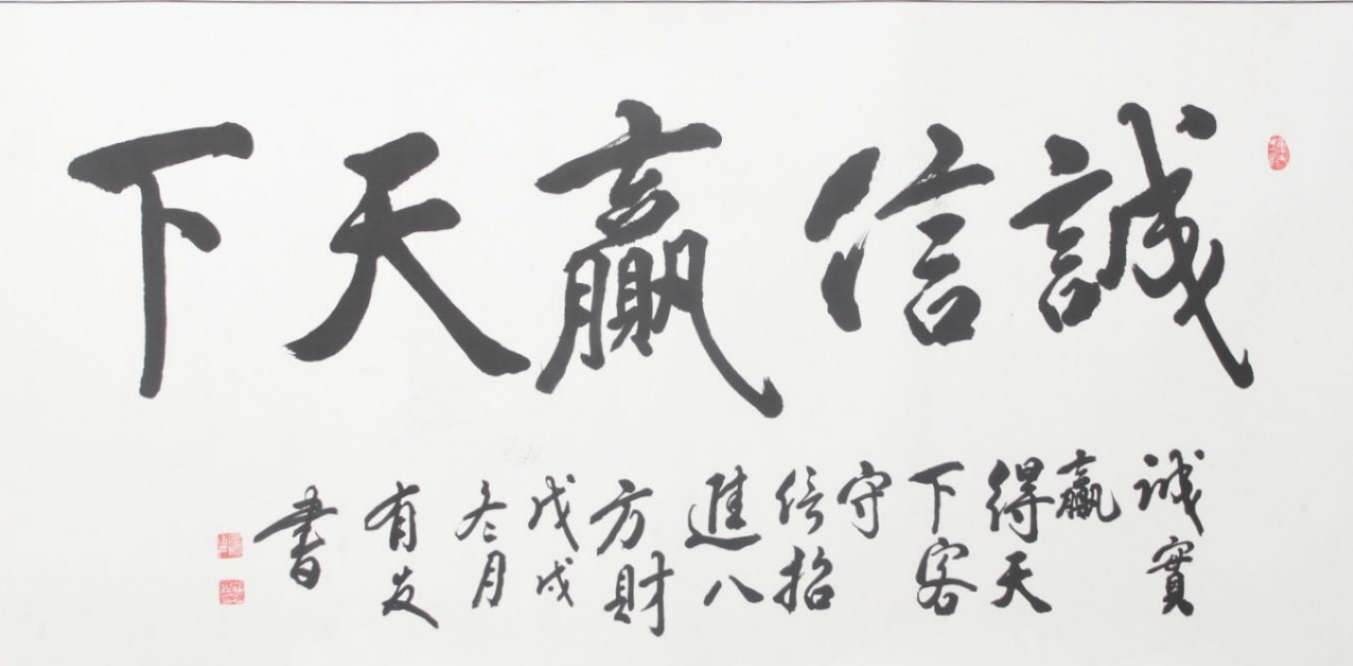 誠信贏天下
誠實
贏
得天
下客
守
信招
進八
方財
戊戌
冬月
有友
書